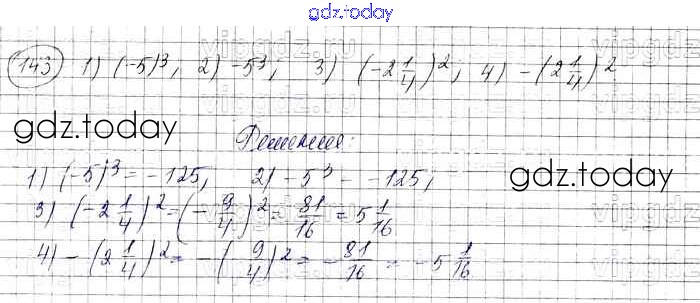 gdz.today
vipgdz.ru
143 1) (-5)³; 2) -5³; 3) (-2 1/4)²; 4) -(2 1/4)²
gdz.today
Решение:
1) (-5)³ = -125; 2) -5³ = -125;
gdz.today
3) (-2 1/4)² = (-9/4)² = 81/16 = 5 1/16
4) -(2 1/4)² = -(9/4)² = -81/16 = -5 1/16